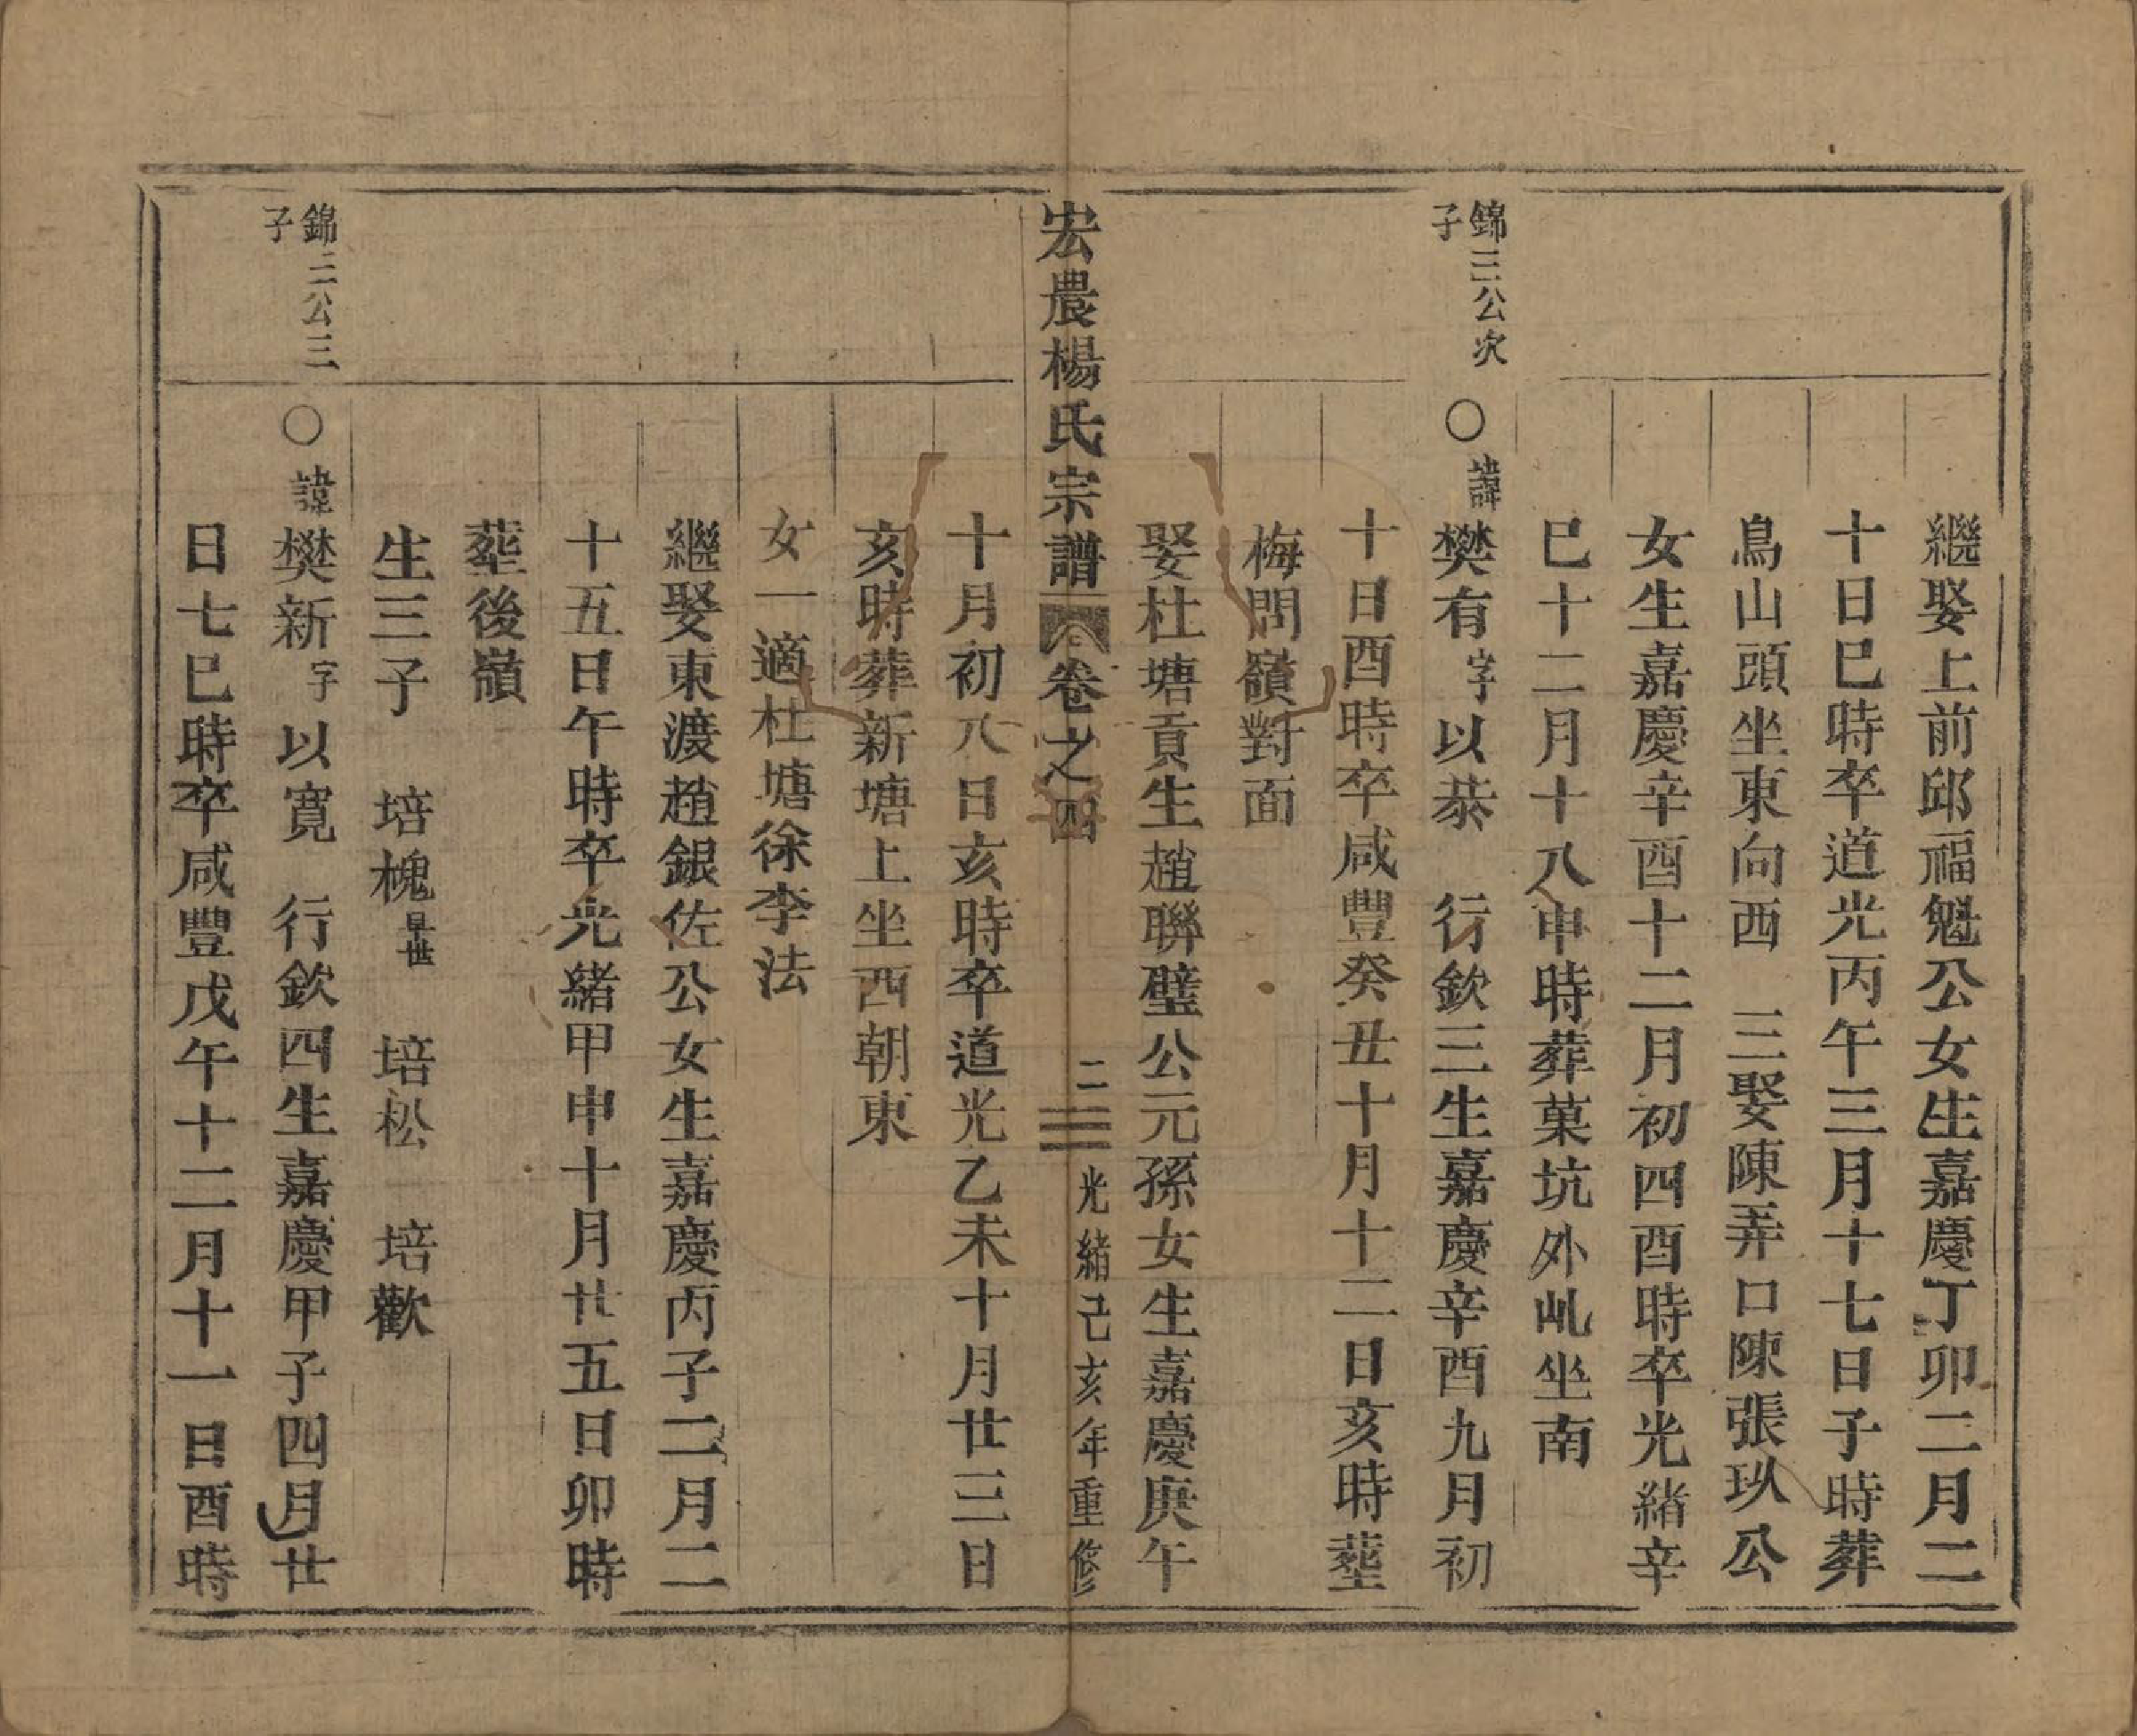 繼娶上前邱福魁公女生嘉慶丁卯二月二
十日巳時卒道光丙午三月十七日子時葬
鳥山頭坐東向西　三娶陳弄口陳張玖公
女生嘉慶辛酉十二月初四酉時卒光緒辛
巳十二月十八申時葬菓坑外乢坐南
錦三公次子
○諱樊有字以恭　行欽三生嘉慶辛酉九月初
十日酉時卒咸豐癸丑十月十二日亥時塟
梅問嶺對面
娶杜塘貢生趙聯璧公元孫女生嘉慶庚午
宏農楊氏宗譜　卷之四　二　光緒己亥年重修
十月初八日亥時卒道光乙未十月廿三日
亥時葬新塘上坐西朝東
女一適杜塘徐李法
繼娶東渡趙銀佐公女生嘉慶丙子二月二
十五日午時卒光緒甲申十月廿五日卯時
塟後嶺
生三子　培槐早世　培松　培歡
錦三公三子
○諱樊新字以寬　行欽四生嘉慶甲子四月廿
日七巳時卒咸豐戊午十二月十一日酉時